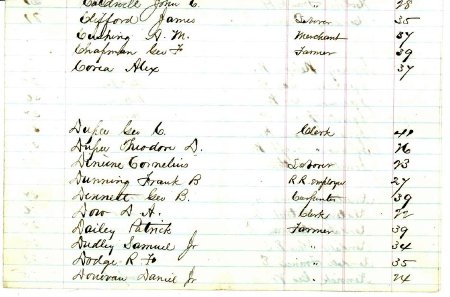 Caldwell John C. " 28
Clifford James Laborer 35
Cushing A. M. Merchant 37
Chapman Geo F Farmer 39
Corea Alex " 37
Dupee Geo C. Clerk 41
Dupee Theodore D. " 26
Cornelius Laborer 23
Dunning Frank B R.R. employee 27
Dennett Geo B. Carpenter 39
Dow D A. Clerk 22
Dailey Patrick Farmer 39
Dudley Samuel Jr " 34
Dodge R F. " 35
Donovan Daniel Jr " 24